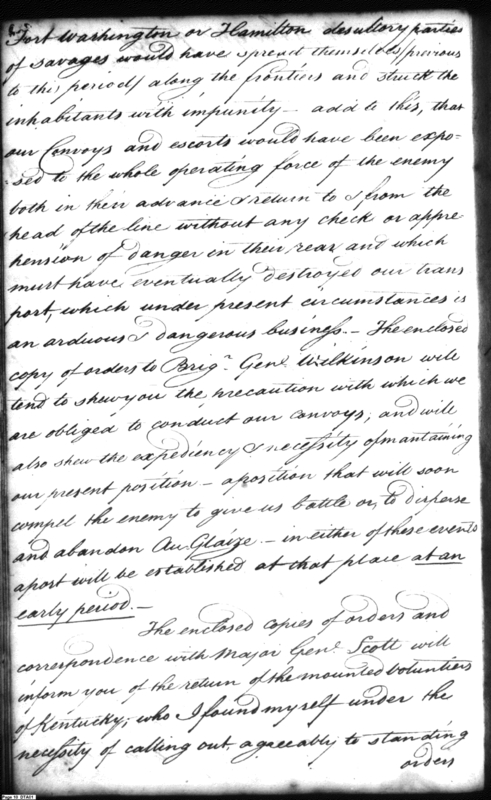 Fort Washington or Hamilton desultory parties
of savages would have spread themselves (previous
to this period) along the frontiers and struck the
inhabitants with impunity — add to this, that
our Convoys and escorts would have been expo-
-sed to the whole operating force of the enemy
both in their advance & return to & from the
head of the line without any check or appre
hension of danger in their rear and which
must have eventually destroyed our trans
port, which under present circumstances is
an arduous & dangerous business. — The enclosed
copy of orders to Brigr. Genl. Wilkinson will
tend to shew you the precaution with which we
are obliged to conduct our convoys; and will
also shew the expediency & necessity of mantaining
our present position — a position that will soon
compel the enemy to give us battle or, to disperse
and abandon Au Glaize. — in either of these events
a post will be established at that place at an
early period. —
The enclosed copies of orders and
correspondence with Major Genl. Scott will
inform you of the return of the mounted volunteers
of Kentucky; who I found myself under the
necessity of calling out, agreeably to standing
orders